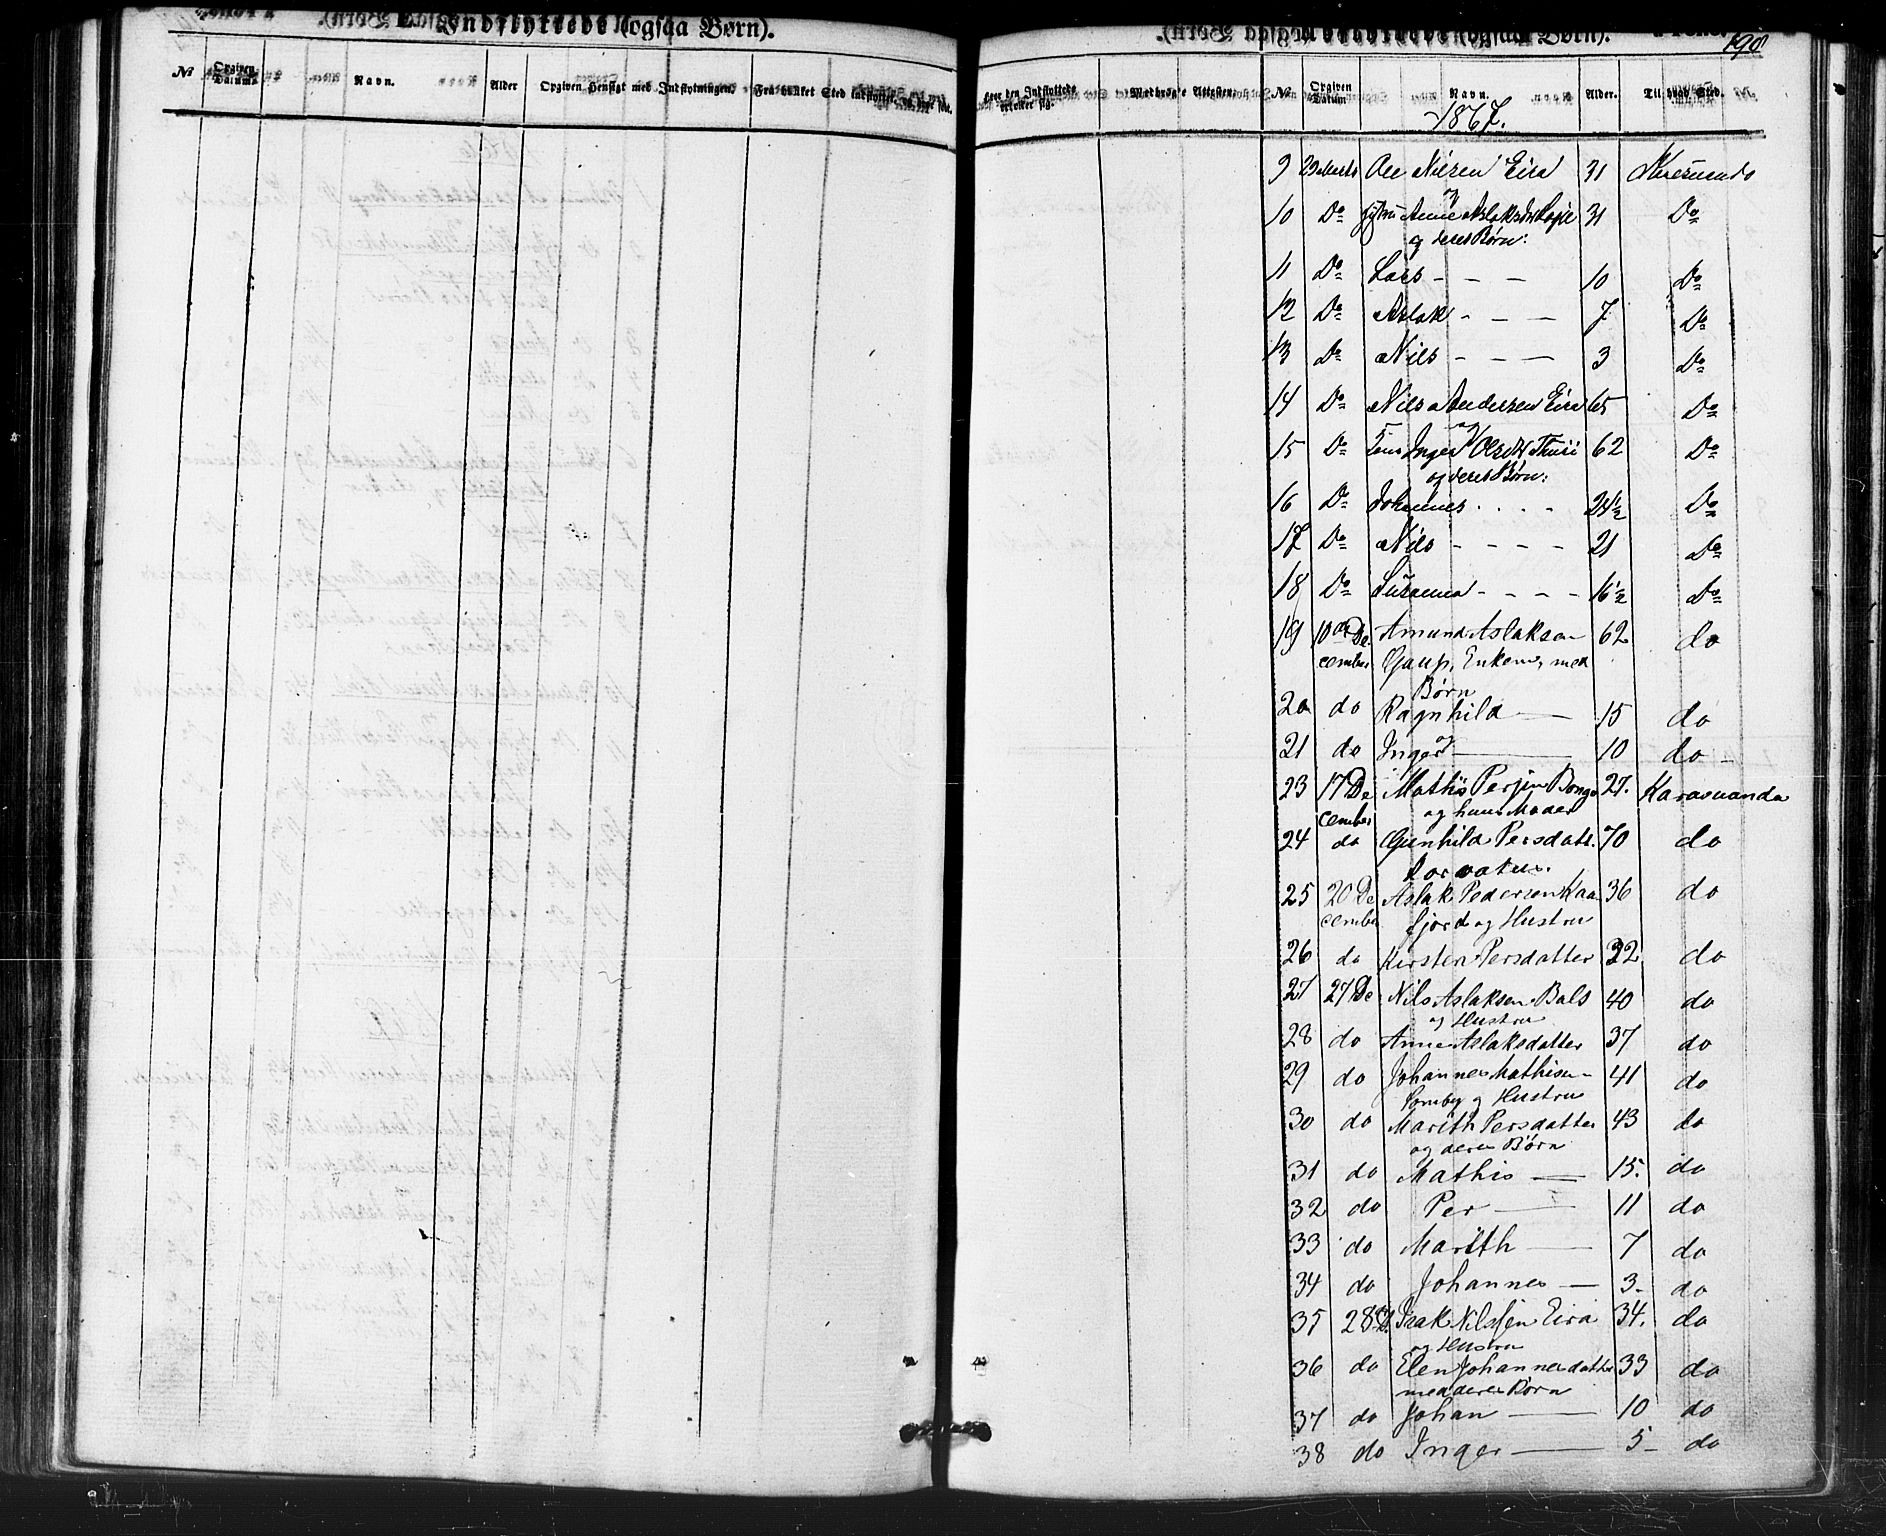 Indflyttede (ogsaa Børn).
190
№ Opgiven Datum. Navn. Alder Opgiven Hensigt med Indflytningen. Fra hvilket Sted indflyttet,
hvor den Indflyttede Medbragte Attester. № Opgiven Datum Navn. Alder. Til hvad Sted.
1867.
9 29 Marts Ole Nilsen Eira 31 Karesuando
og
10 Do Hustru Anne Aslaksdtr 31 Do
og deres Børn:
11 Do Lars - - - 10 Do
12 Do Aslak - - - 7 Do
13 Do Nils - - - 3 Do
14 Do Nils Andersen Eira 65 Do
og
15 Do Inger Olsdtr Thuri 62 Do
og deres Børn:
16 Do Johannes . . . . 24½ Do
17 Do Nils - - - - 21 Do
18 Do Susanna - - - - 16½ Do
19 10de De Amund Aslaksen 62 do
cember Gaup, Enkem, med
Børn
20 do Ragnhild — 15 do
og
21 do Inger — 10 do -
23 17 De Mathis Persen Bongo 27. Karasuando
cember og hans Moder
24 do Gunhild Persdatt. 70 do
25 20 De Aslak Pedersen Kaa 36 do
cember fjord og Hustru
26 do Kirsten Persdatter 32 do
27 27 De Nils Aslaksen Bals 40 do
og Hustru
28 do Anne Aslaksdatter 37 do
29 do Johannes Mathisen 41 do
Somby og Hustru
30 do Marith Persdatter 43 do
og deres Børn
31 do Mathis — 15. do
32 do Per — 11 do
33 do Marith — 7 do
34 do Johannes — 3 - do
35 28 D. Isak Nilssen Eira 34. do
og Hustru
36 do Elen Johannesdatter 33 do
med deres Børn
37 do Johan — 10 do
38 do Inger — 5 - do